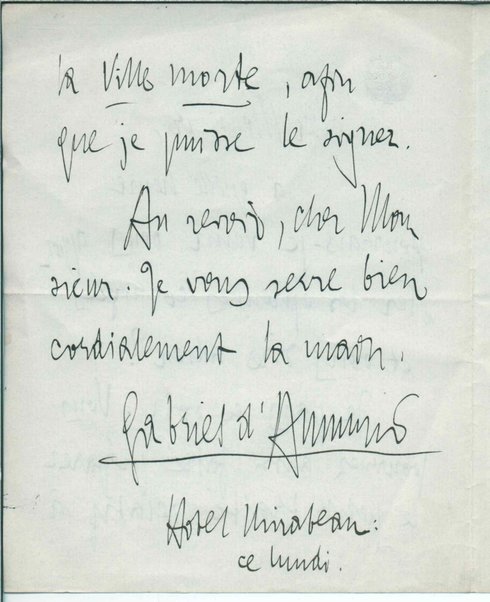 la Ville morte, afin
que je puisse le signer.
Au revoir, cher Mon
sieur. Je vous serre bien
cordialement la main.
Gabriel d'Annunzio
Hotel Mirabeau:
ce lundi.